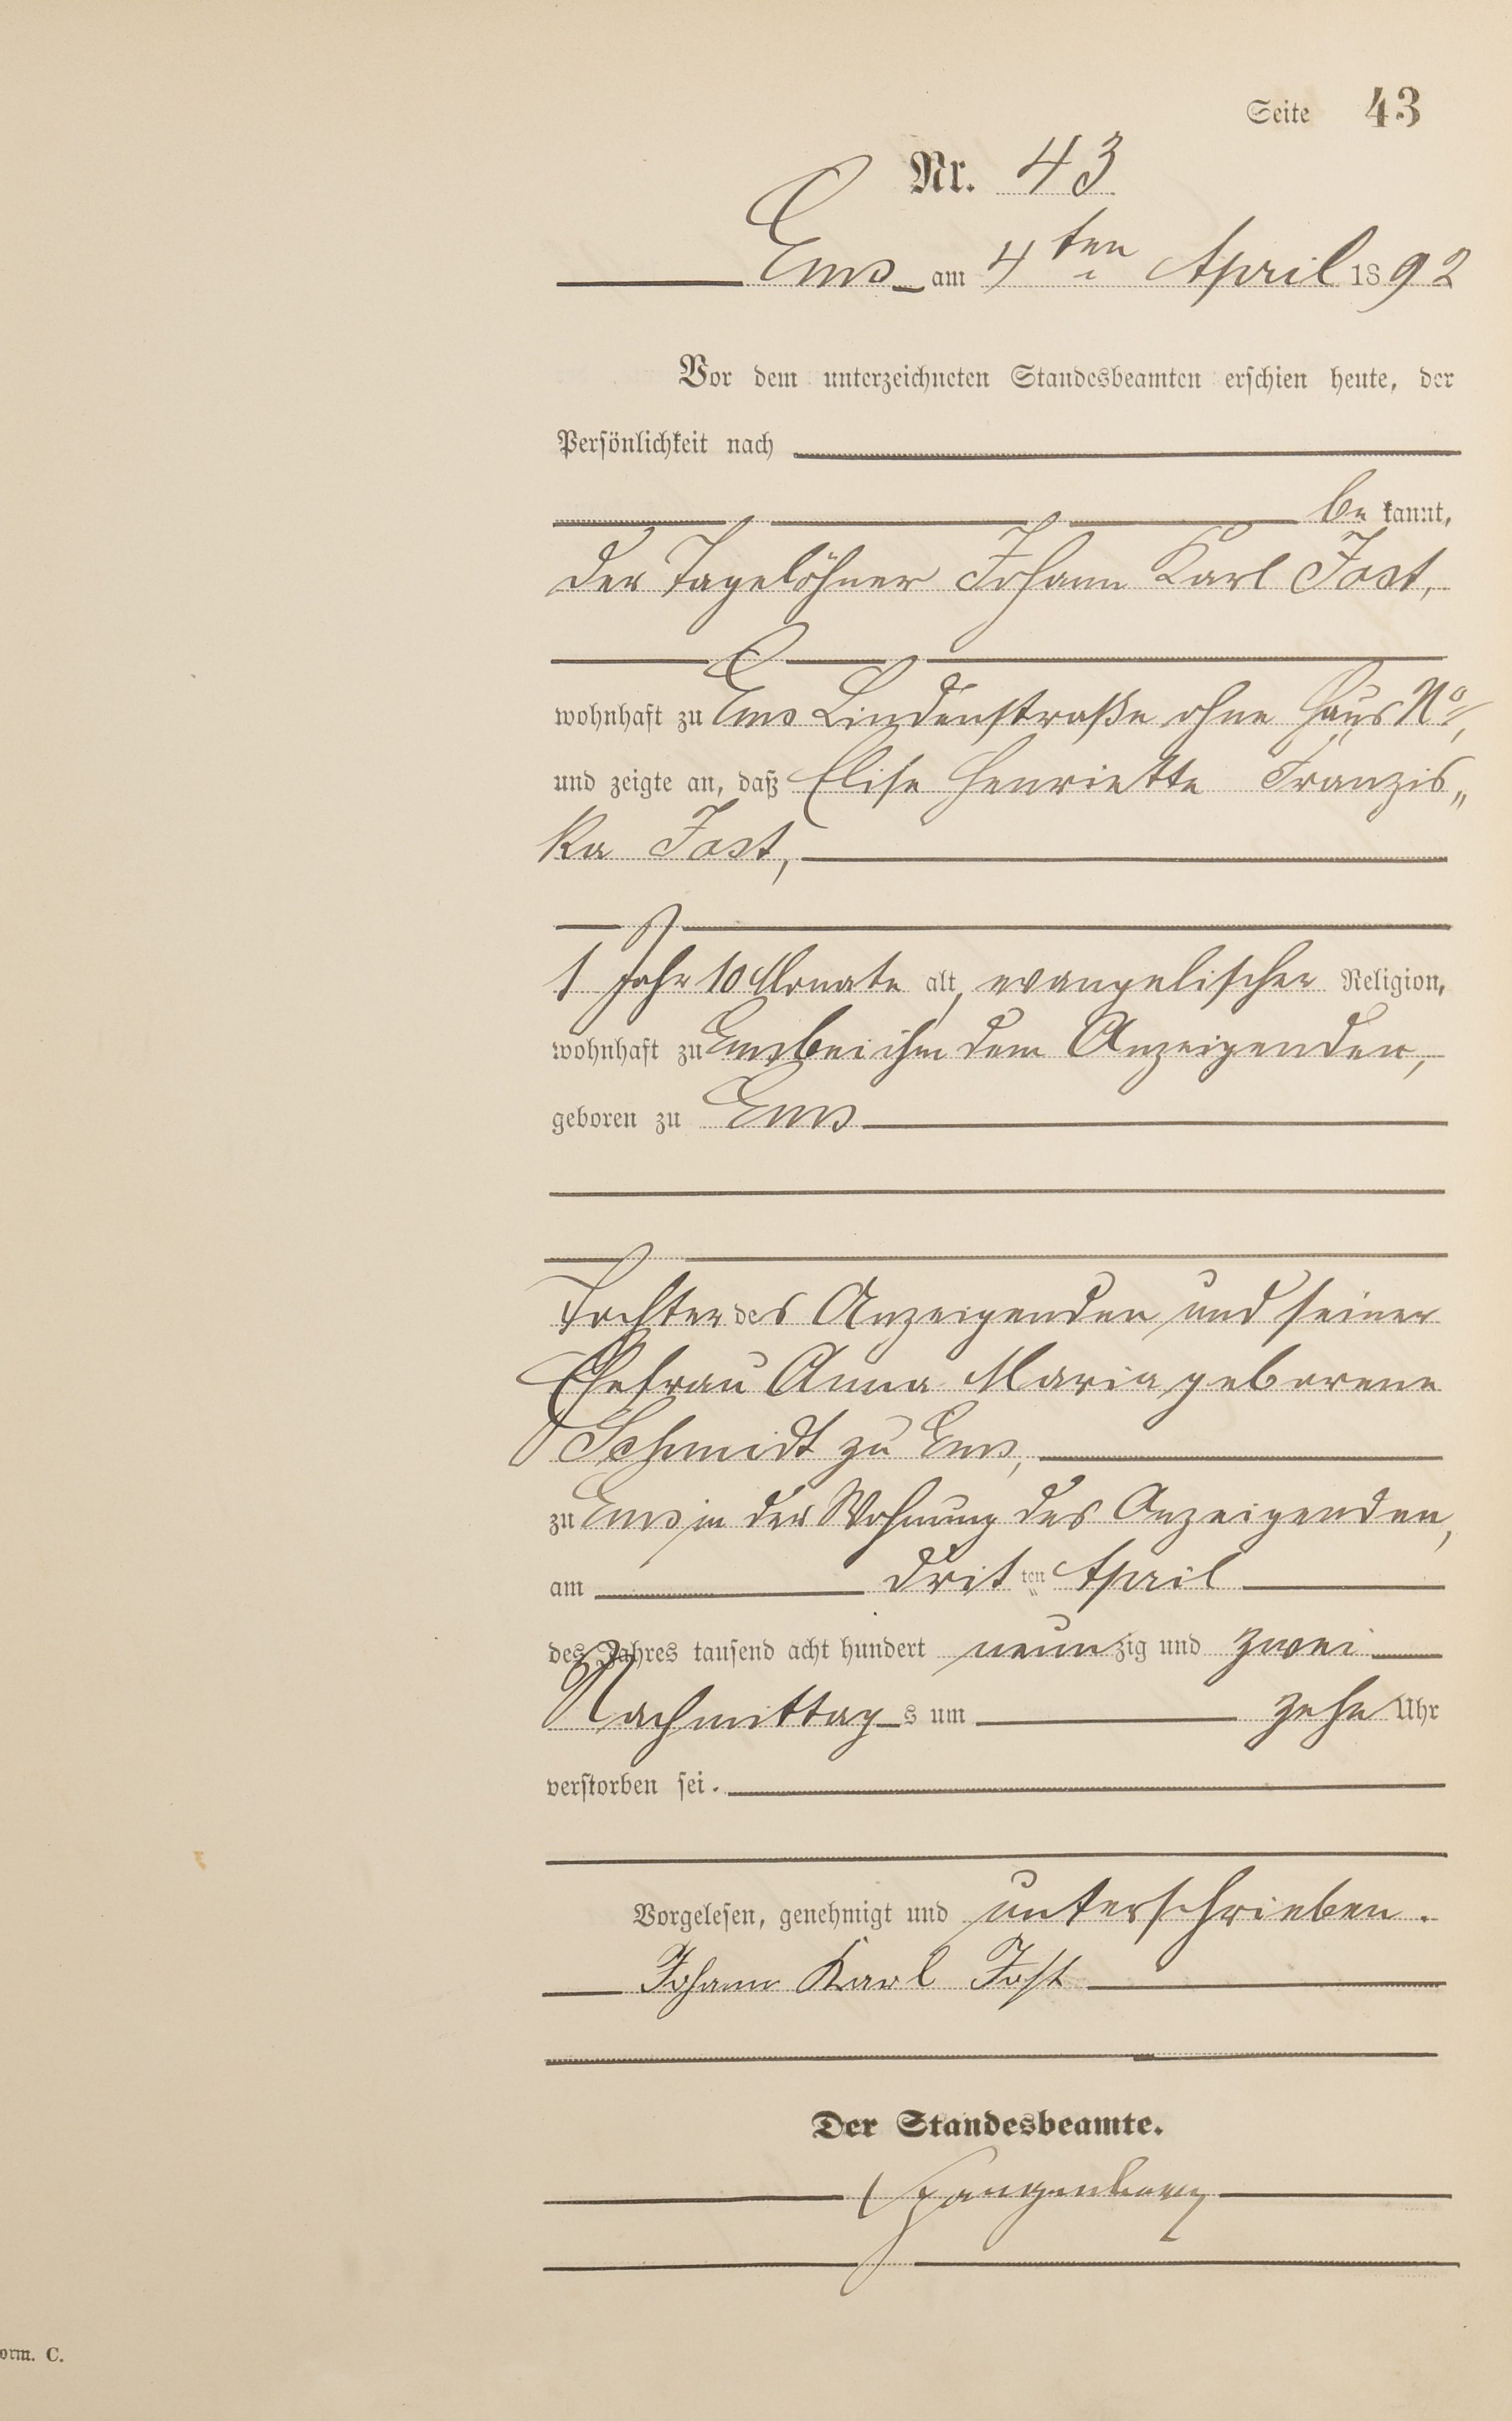 Seite 43
Nr. 43
Ems am 4ten April 1892
Vor dem unterzeichneten Standesbeamten erschien heute, der
Persönlichkeit nach
be kannt,
der Tagelöhner Johann Karl Jost,
wohnhaft zu Ems Lindenstraße ohne Haus No,
und zeigte an, daß Elise Henriette Franzis„
ka Jost,
1 Jahr 10 Monate alt, evangelischer Religion,
wohnhaft zu Ems bei ihm dem Anzeigenden,
geboren zu Ems
Tochter des Anzeigenden und seiner
Ehefrau Anna Maria geborene
Schmidt zu Ems,
zu Ems in der Wohnung des Anzeigenden,
am dritten April
des Jahres tausend acht hundert neunzig und zwei
Nachmittags um zehn Uhr
verstorben sei.
Vorgelesen, genehmigt und unterschrieben.
Johann Karl Jost
Der Standesbeamte.
Spangenberg
orm. C.